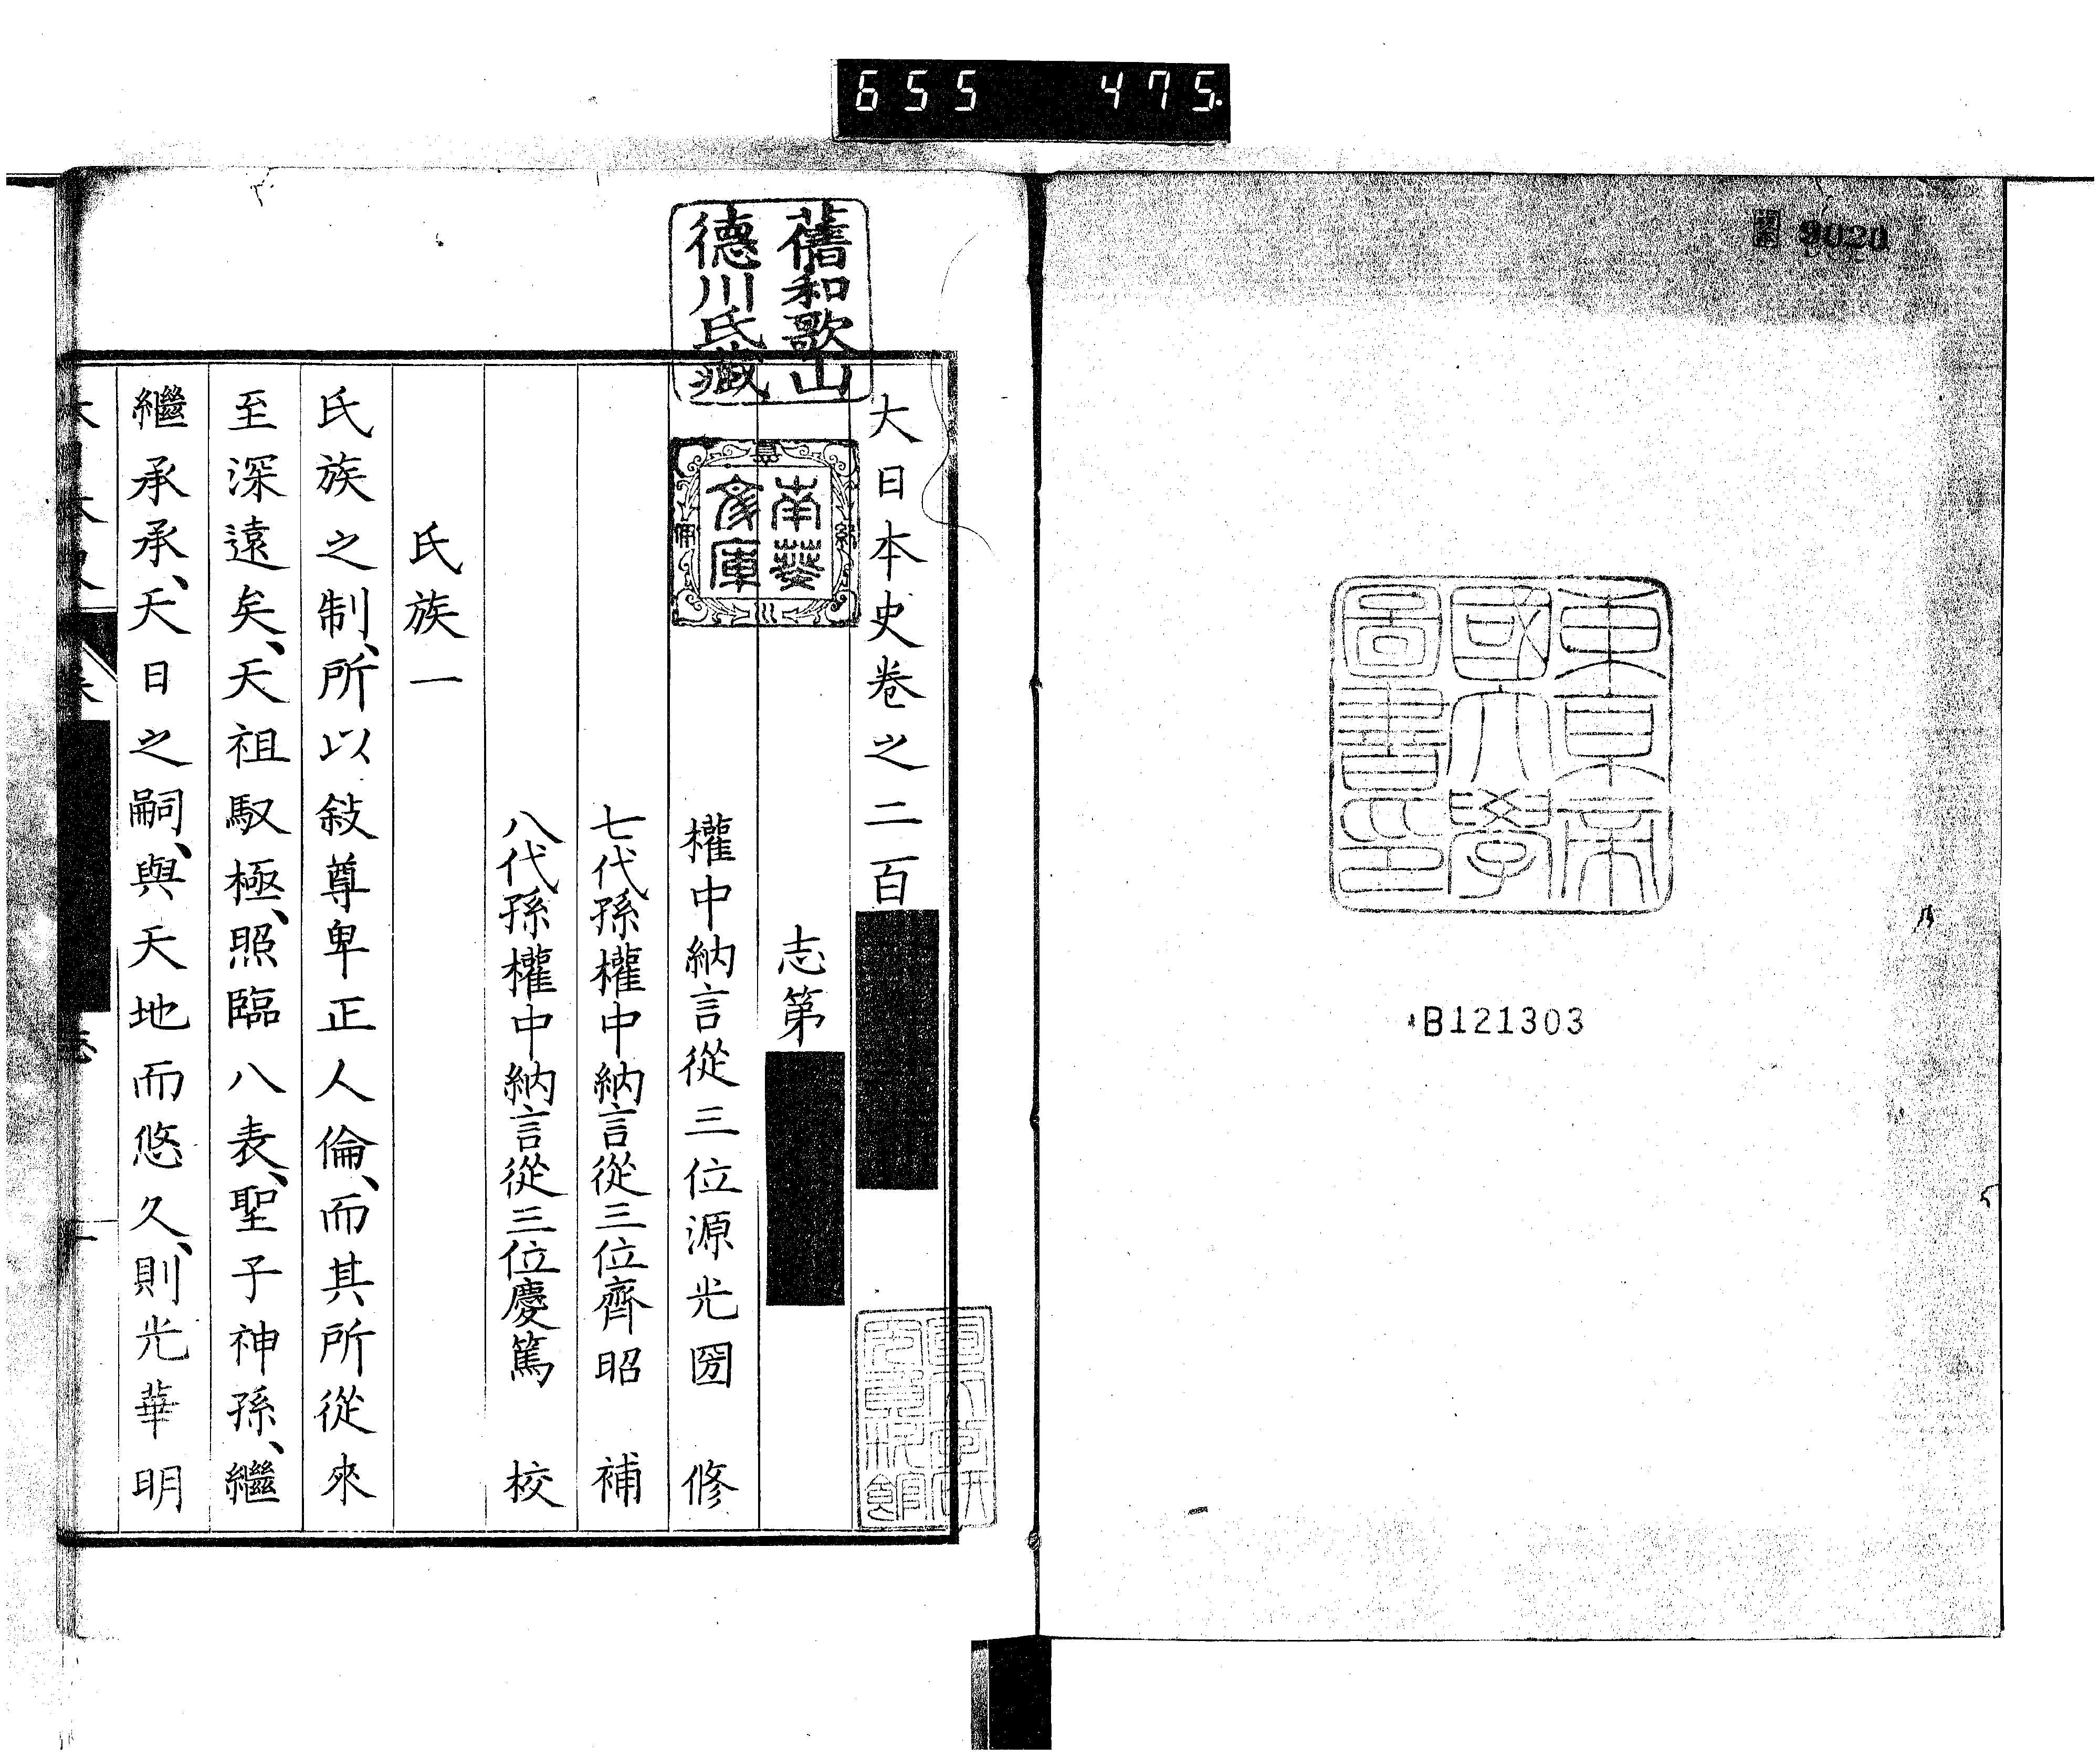 655 475.
9020
東京帝
國大學
圖書印
B121303
舊和歌山
德川氏藏
南葵
文庫
大日本史卷之二百
志第
權中納言從三位源光圀 修
七代孫權中納言從三位齊昭 補
八代孫權中納言從三位慶篤 校
氏族一
氏族之制、所以敍尊卑正人倫、而其所從來
至深遠矣、天祖馭極、照臨八表、聖子神孫、繼
繼承承、天日之嗣、與天地而悠久、則光華明